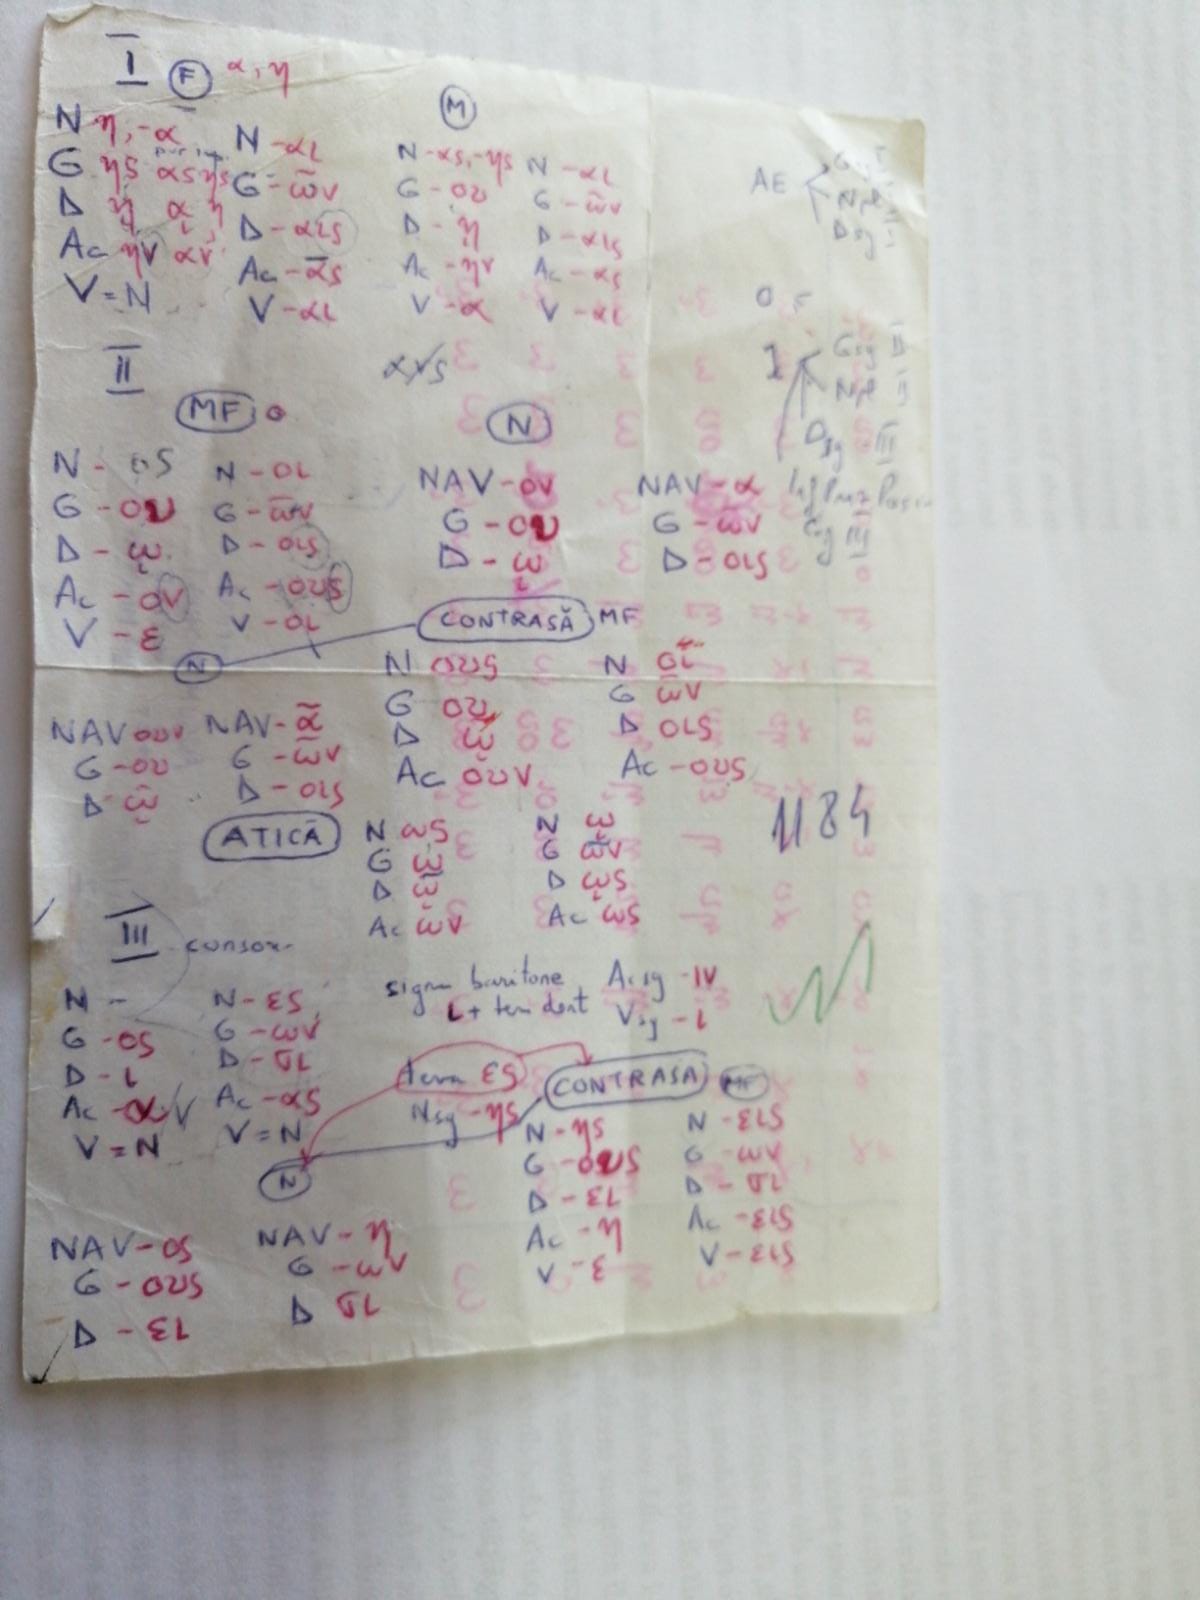 I F α, η
M
N η, -α N -αι N -ας, -ης N -αι
G ης ας ης G -ῶν G -ου G -ῶν
D ῃ ᾳ ῃ D -αις D -ῃ D -αις
Ac ην αν Ac -ᾱς Ac -ην Ac -ας
V = N V -αι V -α V -αι
AE
II
MF ο N
N - ος N -οι NAV -ον NAV -α
G -ου G -ων G -ου G -ων
D -ῳ D -οις D -ῳ D -οις
Ac -ον Ac -ους
V -ε V -οι
CONTRASĂ MF
N
N ους N οι
G ου G ων
D ῳ D οις
Ac ουν Ac -ους
NAV ουν NAV -ᾶ
G -ου G -ων
D ῳ D -οις
1184
ATICĂ
N ως N ῳ
G ω G ων
D ῳ D ῳς
Ac ων Ac ως
III conson.
N - N -ες
G -ος G -ων
D -ι D -σι
Ac -α/ν Ac -ας
V = N V = N
sigm baritone Ac sg -ιν
ι + tem dent V sg -ι
tema ες CONTRASĂ MF
N sg -ης
N -ης N -εις
G -ους G -ων
D -ει D -σι
Ac -η Ac -εις
V -ες V -εις
N
NAV -ος NAV -η
G -ους G -ων
D -ει D σι